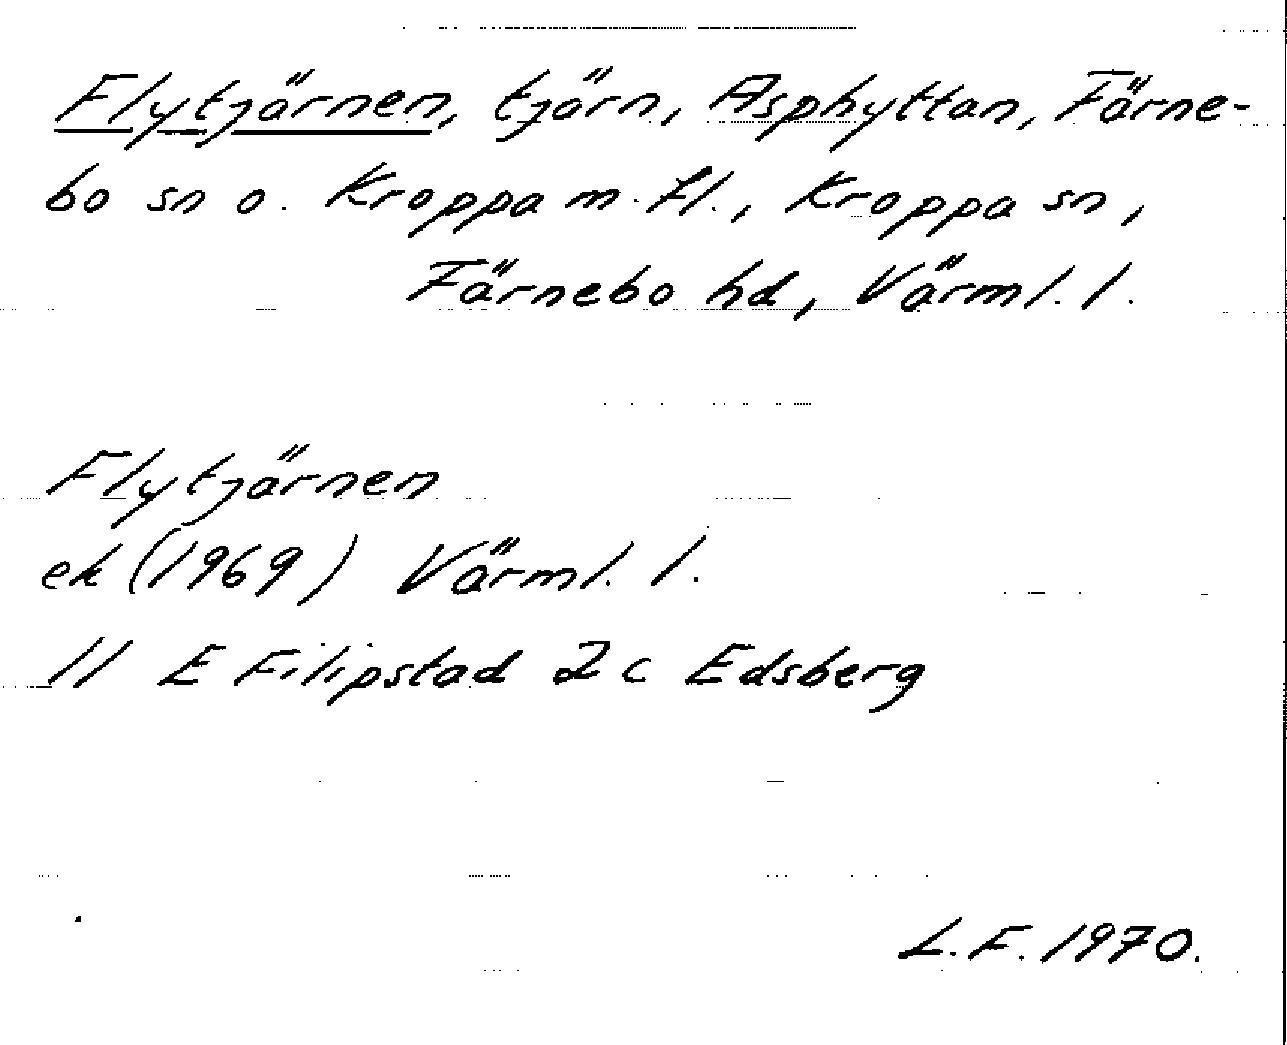 Flytjärnen, tjärn, Asphyttan, Färne-
bo sn o. Kroppa m.fl., Kroppa sn,
Färnebo hd, Värml. l.
Flytjärnen
ek (1969) Värml. l.
11 E Filipstad 2 c Edsberg
L.F. 1970.